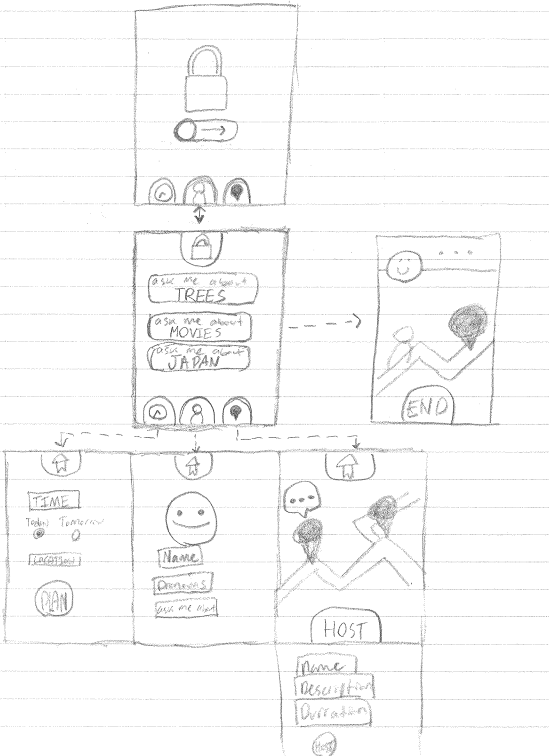 ask me about
TREES
ask me about
MOVIES
ask me about
JAPAN
END
TIME
Today Tomorrow
LOCATION
PLAN
Name
Pronouns
ask me about
HOST
Name
Description
Durration
HOST